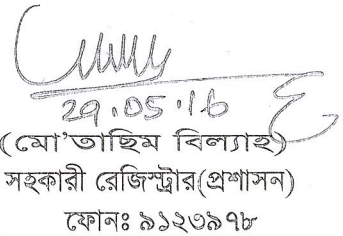 29.05.16
(মো'তাছিম বিল্যাহ)
সহকারী রেজিস্ট্রার(প্রশাসন)
ফোনঃ ৯১২৩৯৭৮